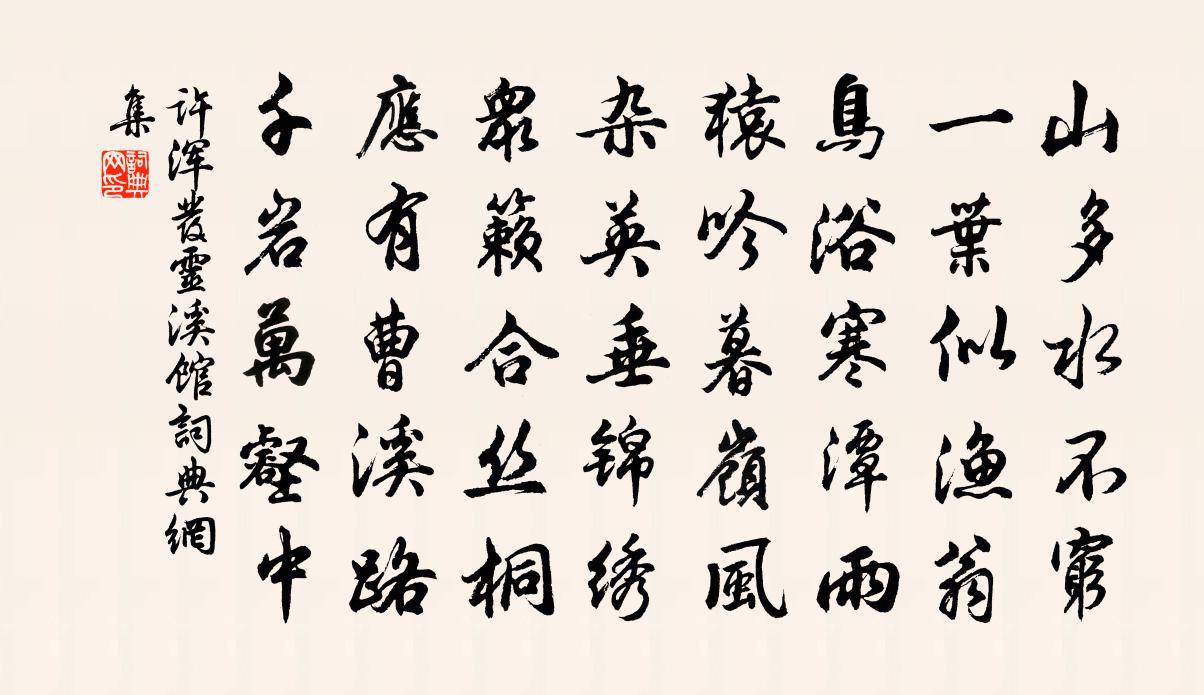 山多水不窮
一葉似漁翁
鳥浴寒潭雨
猿吟暮嶺風
杂英垂锦绣
眾籟合丝桐
應有曹溪路
千岩萬壑中
许浑發靈溪馆詞典網
集
詞典网印